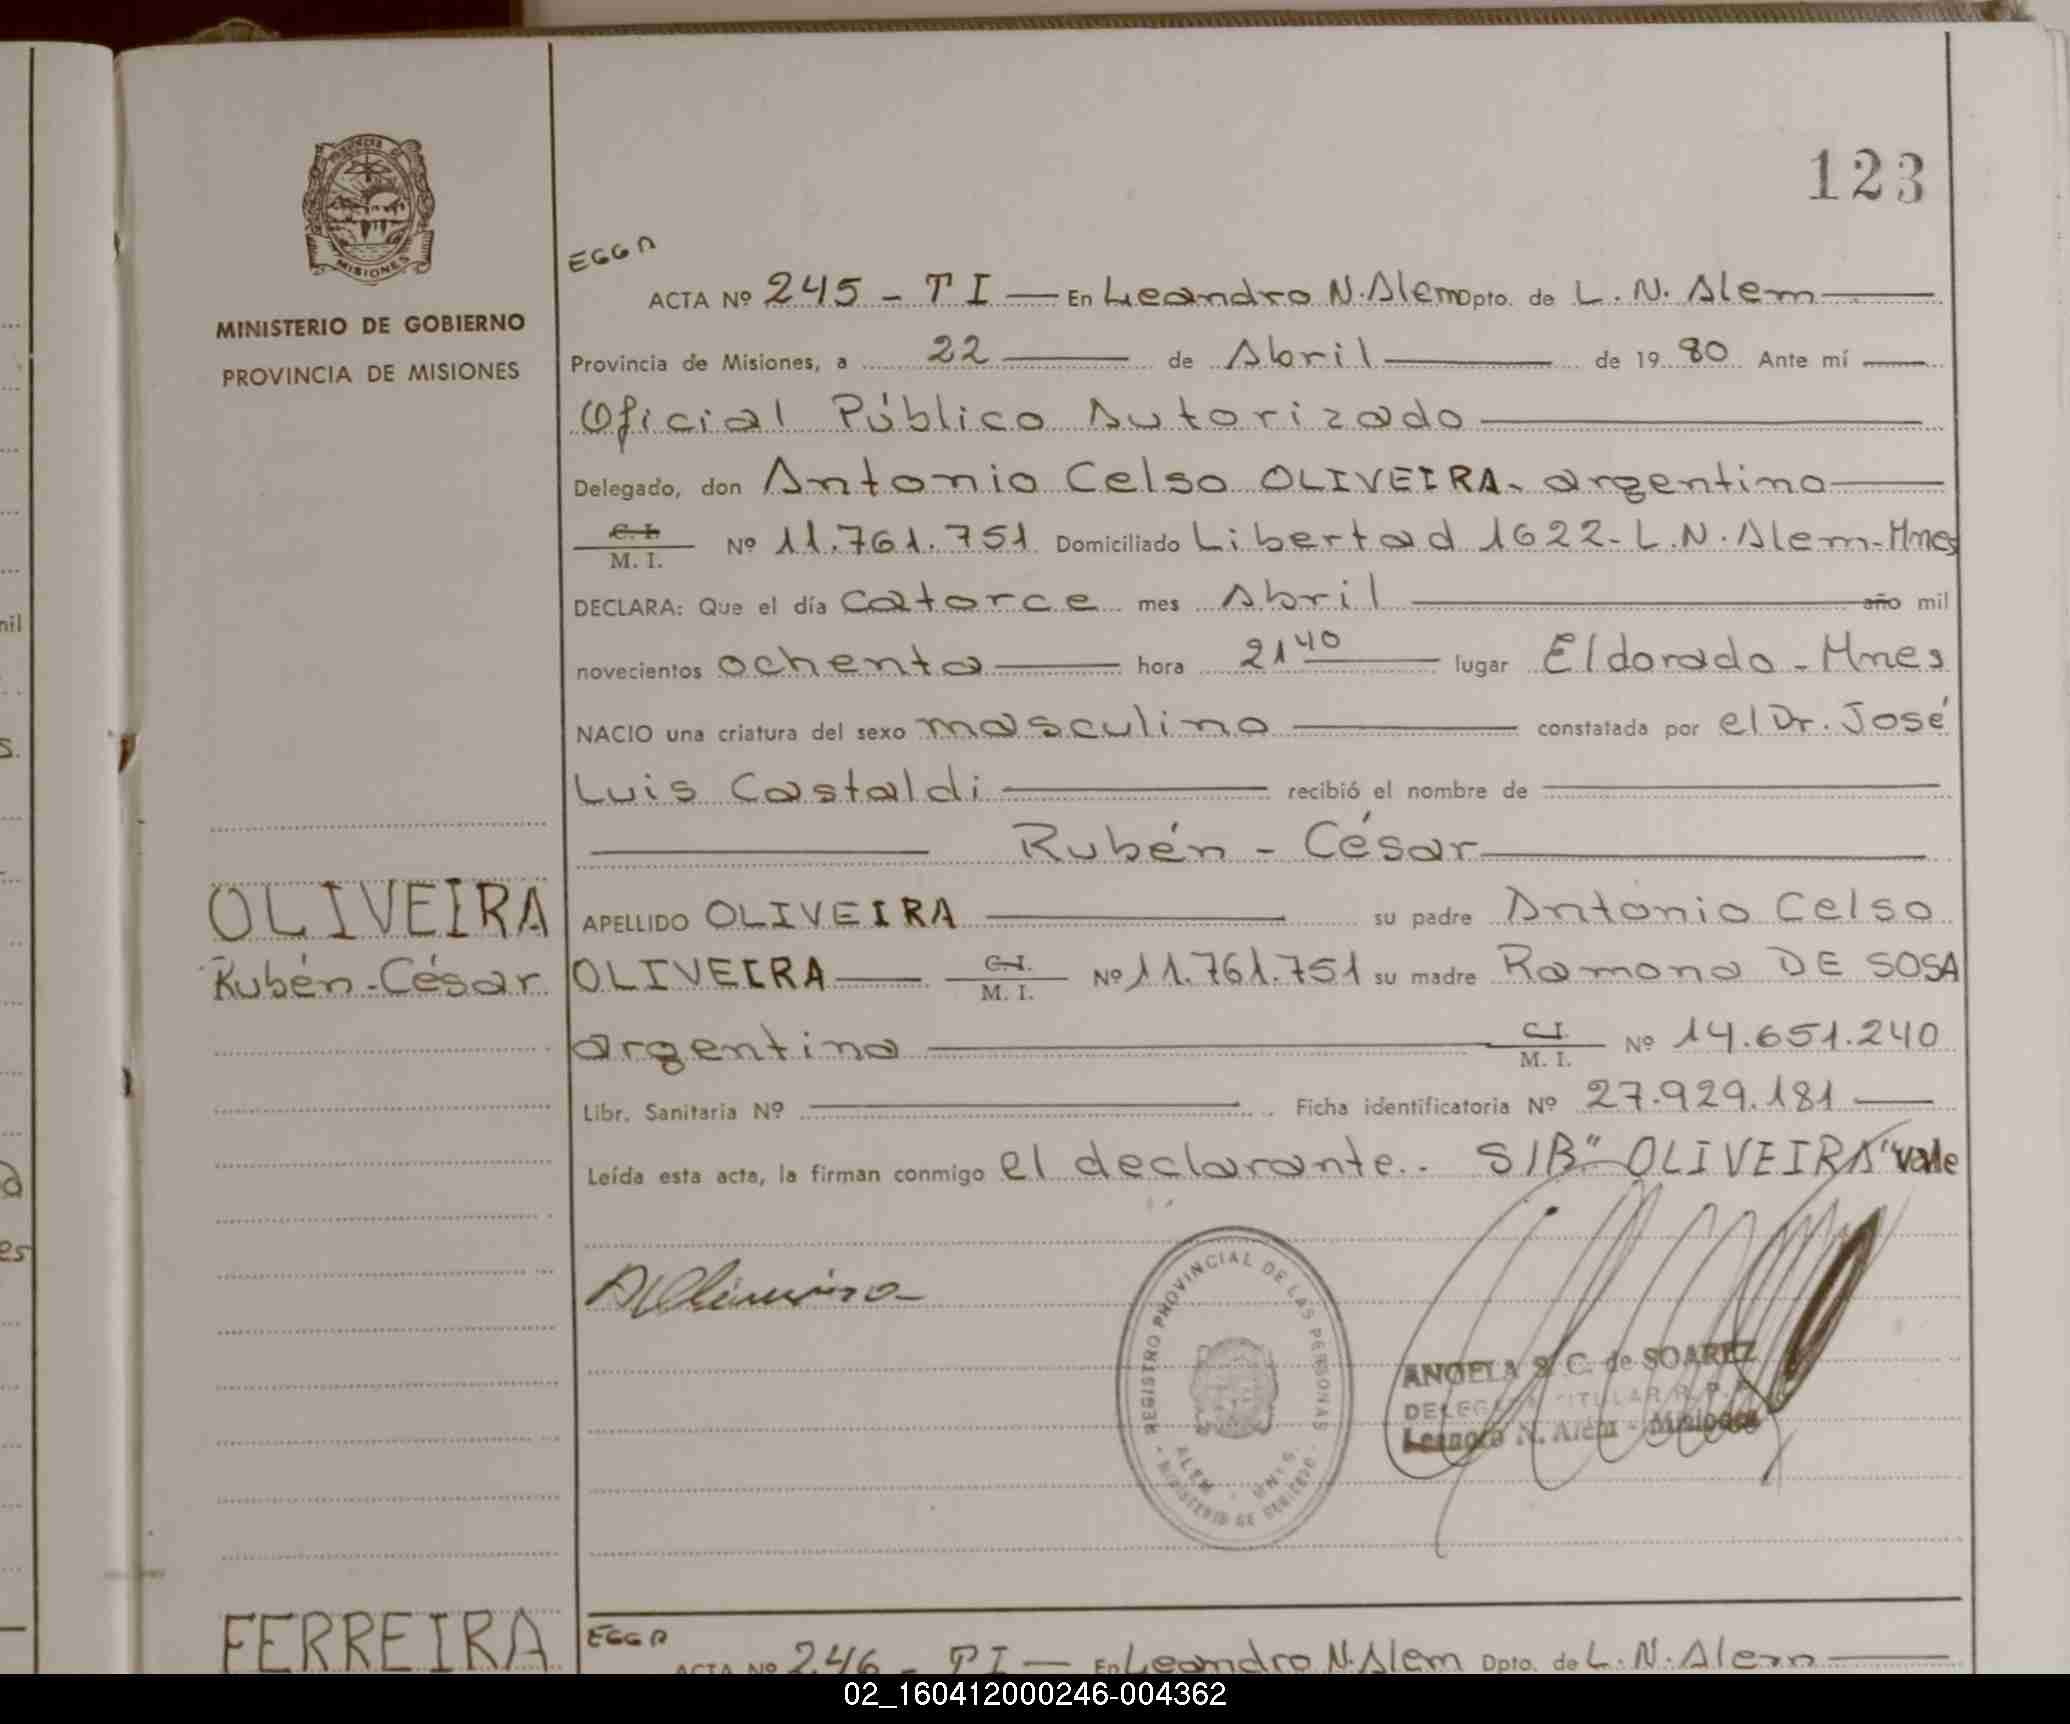 123
PROVINCIA
MISIONES
MINISTERIO DE GOBIERNO
PROVINCIA DE MISIONES
EGGA
ACTA Nº 245 - TI — En Leandro N. Alem Dpto. de L. N. Alem
Provincia de Misiones, a 22 de Abril de 19 80 Ante mí
Oficial Público Autorizado
Delegado, don Antonio Celso OLIVEIRA. argentino
C. I.
M. I. Nº 11.761.751 Domiciliado Libertad 1622- L.N. Alem-Mnes
DECLARA: Que el día catorce mes Abril año mil
novecientos ochenta hora 21 40 lugar Eldorado - Mnes
NACIO una criatura del sexo masculino constatada por el Dr. José
Luis Castaldi recibió el nombre de
Rubén - César
APELLIDO OLIVEIRA su padre Antonio Celso
OLIVEIRA C. I. M. I. Nº 11.761.751 su madre Ramona DE SOSA
argentina C. I. M. I. Nº 14.651.240
Libr. Sanitaria Nº Ficha identificatoria Nº 27.929.181
Leída esta acta, la firman conmigo el declarante.. S/B "OLIVEIRA" vale
OLIVEIRA
Rubén-César
REGISTRO PROVINCIAL DE LAS PERSONAS
ALEM - MNES.
MINISTERIO DE GOBIERNO
ANGELA S. C. de SOAREZ
DELEGADA TITULAR R. P. P.
Leandro N. Alem - Misiones
FERREIRA
EGGA
ACTA Nº 246 - TI — En Leandro N. Alem Dpto. de L. N. Alem
02_160412000246-004362